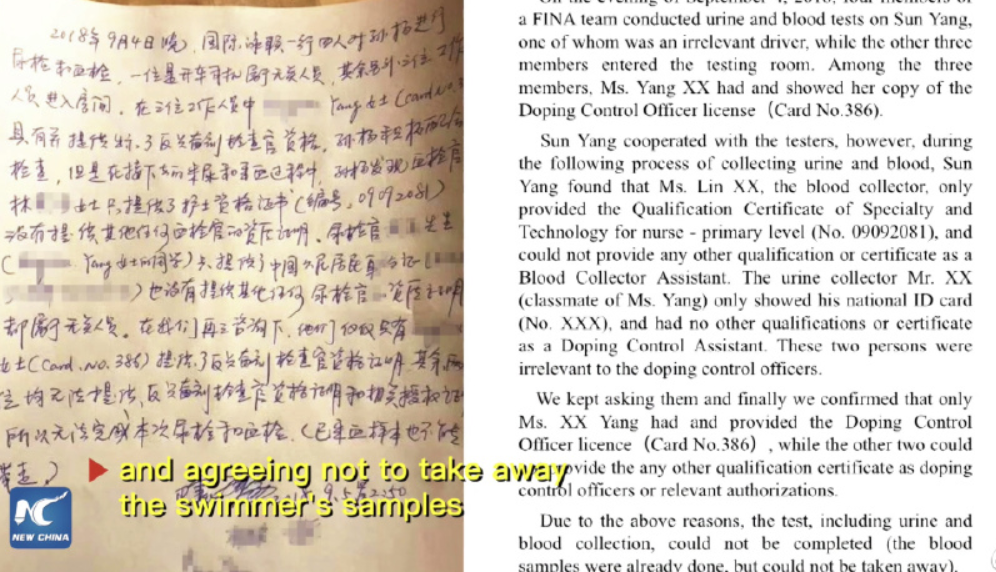 2018年9月4日晚,国际泳联一行四人对孙杨进行
尿检和血检,一位是开车司机属于无关人员,其余另外三位工作
人员进入房间。在三位工作人员中 Yang女士(Card.no.3
具有并提供
检查官资格。孙杨积极配合
检查,但是在接下来的 过程中,孙杨发现血检官
林 女士只提供了护士资格证书(编号:09092081)
没有提供其他任何血检官的资质证明。尿检官 先生
( Yang女士的同学)只提供了中国公民居民身份证(
)也没有提供其他任何尿检官 资质证明
都属于无关人员。在我们再三咨询下,他们仅仅只有
女士(Card.no.386)提供了反兴奋剂检查官资格证明,其余两
位均无法提供反兴奋剂检查官资格证明和相关授权证
所以无法完成本次尿检和血检。(已采血样本也不能
带走。)
▶ and agreeing not to take away
the swimmer's samples
NC
NEW CHINA
On the evening of September 4, 2018, four members of
a FINA team conducted urine and blood tests on Sun Yang,
one of whom was an irrelevant driver, while the other three
members entered the testing room. Among the three
members, Ms. Yang XX had and showed her copy of the
Doping Control Officer license (Card No.386).
Sun Yang cooperated with the testers, however, during
the following process of collecting urine and blood, Sun
Yang found that Ms. Lin XX, the blood collector, only
provided the Qualification Certificate of Specialty and
Technology for nurse - primary level (No. 09092081), and
could not provide any other qualification or certificate as a
Blood Collector Assistant. The urine collector Mr. XX
(classmate of Ms. Yang) only showed his national ID card
(No. XXX), and had no other qualifications or certificate
as a Doping Control Assistant. These two persons were
irrelevant to the doping control officers.
We kept asking them and finally we confirmed that only
Ms. XX Yang had and provided the Doping Control
Officer licence (Card No.386) , while the other two could
provide the any other qualification certificate as doping
control officers or relevant authorizations.
Due to the above reasons, the test, including urine and
blood collection, could not be completed (the blood
samples were already done, but could not be taken away).